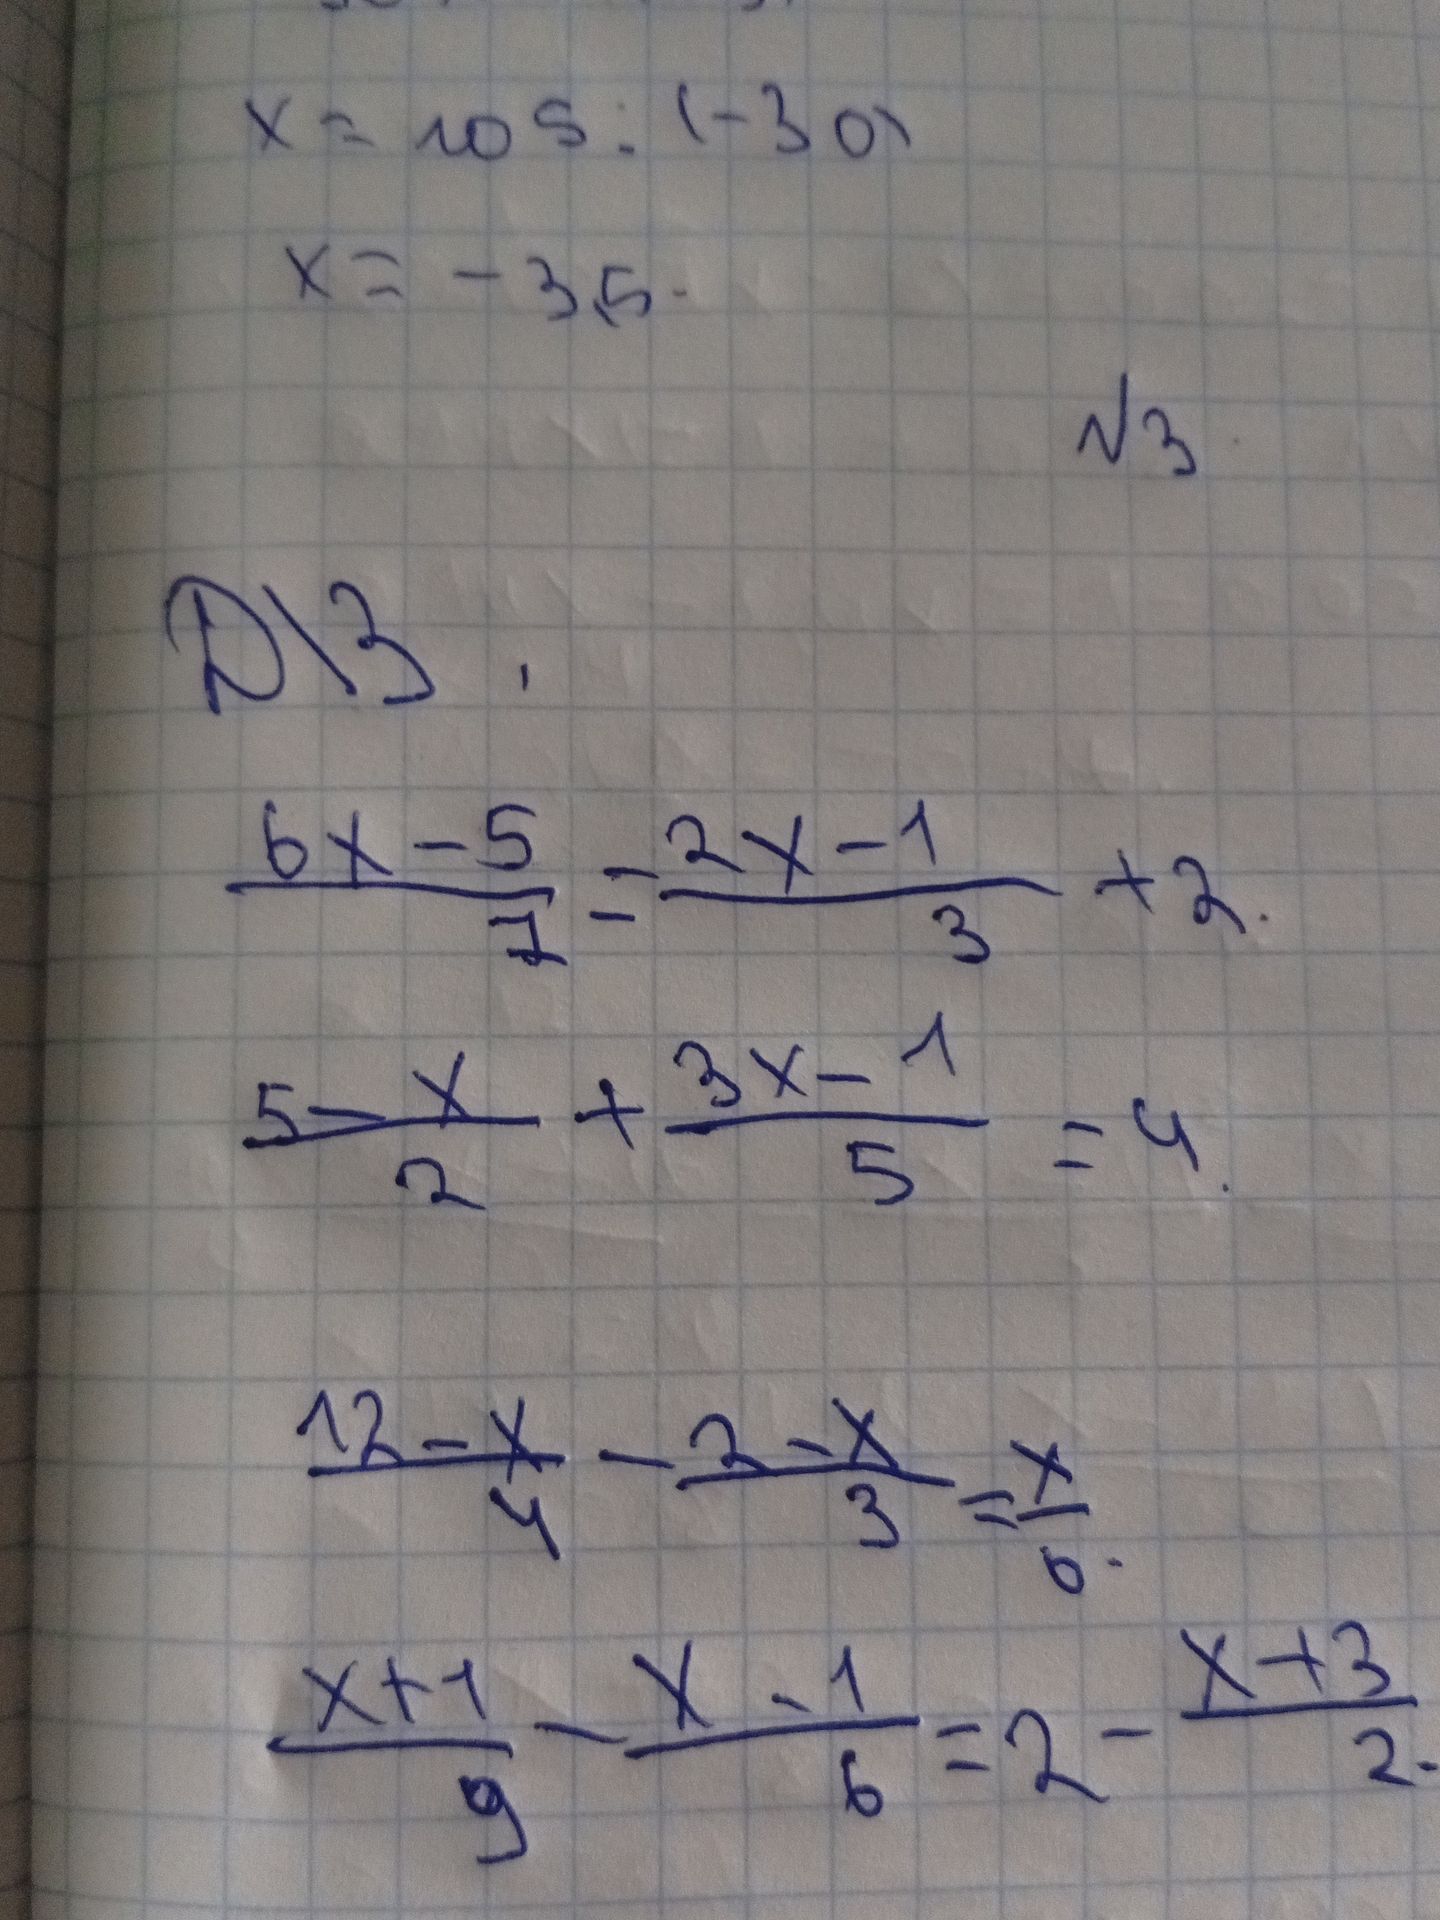 x = 105 : (-30)
x = -3,5.
№3.
Д\З.
6x-5/7 = 2x-1/3 + 2.
5-x/2 + 3x-1/5 = 4.
12-x/4 - 2-x/3 = x/6.
x+1/9 - x-1/6 = 2 - x+3/2.